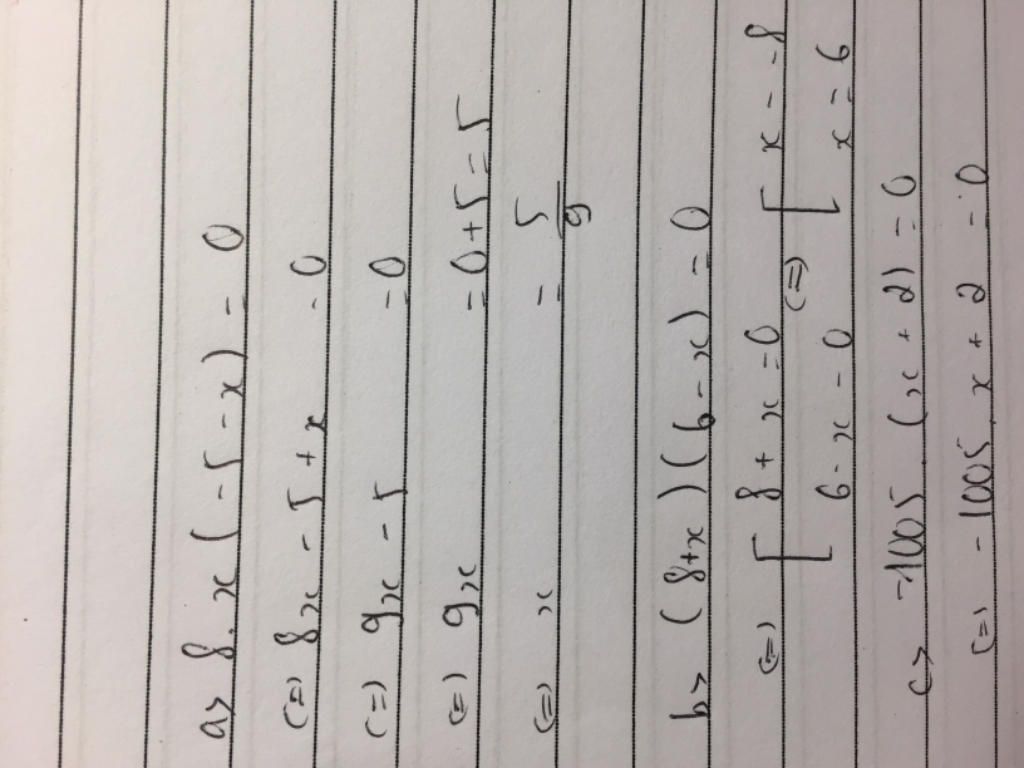 a> 8. x (-5 - x) = 0
(=) 8x - 5 + x = 0
(=) 9x - 5 = 0
(=) 9x = 0 + 5 = 5
(=) x = 5/9
b> (8+x) (6-x) = 0
(=) [ 8 + x = 0 (=) [ x = -8
6 - x = 0 x = 6
c> -1005. (x + 2) = 0
(=) -1005. x + 2 = 0